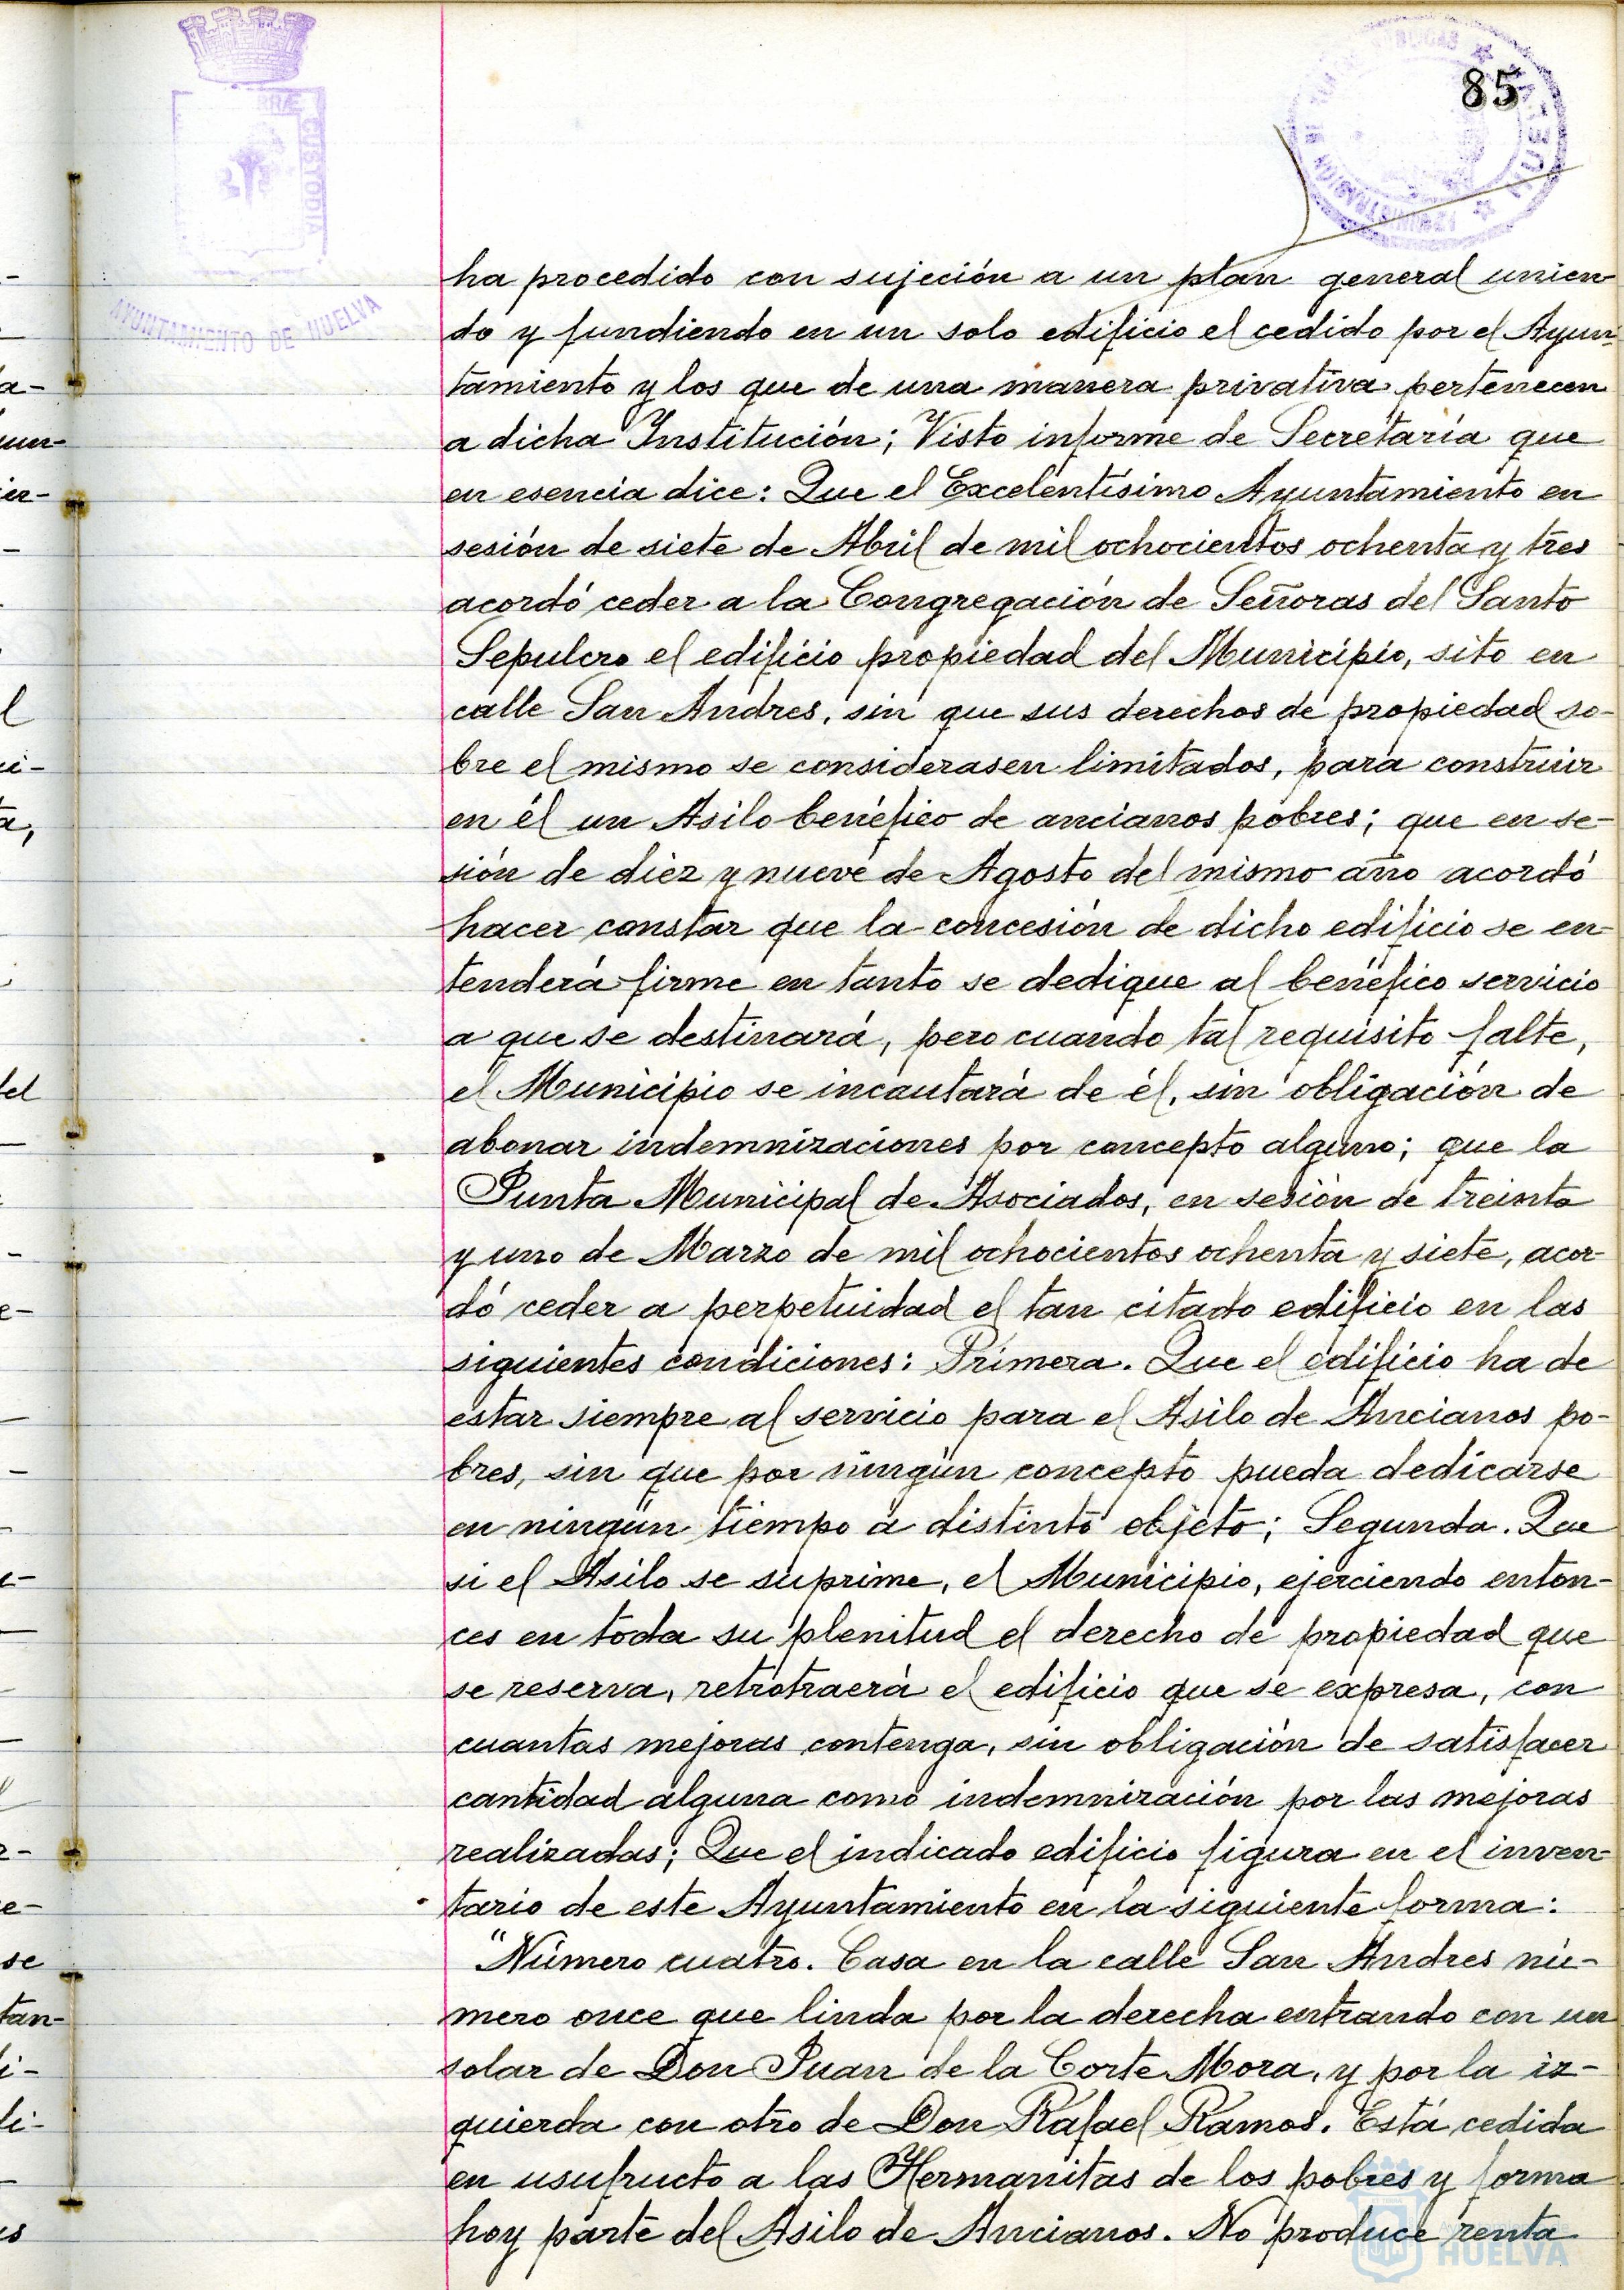 85
RRÆ CUSTODIA
AYUNTAMIENTO DE HUELVA
ha procedido con sujeción a un plan general unien-
do y fundiendo en un solo edificio el cedido por el Ayun-
tamiento y los que de una manera privativa pertenecen
a dicha Institución; Visto informe de Secretaría que
en esencia dice: Que el Excelentísimo Ayuntamiento en
sesión de siete de Abril de mil ochocientos ochenta y tres
acordó ceder a la Congregación de Señoras del Santo
Sepulcro el edificio propiedad del Municipio, sito en
calle San Andres, sin que sus derechos de propiedad so-
bre el mismo se considerasen limitados, para construir
en él un Asilo benéfico de ancianos pobres; que en se-
sión de diez y nueve de Agosto del mismo año acordó
hacer constar que la concesión de dicho edificio se en-
tenderá firme en tanto se dedique al benéfico servicio
a que se destinará, pero cuando tal requisito falte,
el Municipio se incautará de él, sin obligación de
abonar indemnizaciones por concepto alguno; que la
Junta Municipal de Asociados, en sesión de treinta
y uno de Marzo de mil ochocientos ochenta y siete, acor-
dó ceder a perpetuidad el tan citado edificio en las
siguientes condiciones: Primera. Que el edificio ha de
estar siempre al servicio para el Asilo de Ancianos po-
bres, sin que por ningún concepto pueda dedicarse
en ningún tiempo a distinto objeto; Segunda. Que
si el Asilo se suprime, el Municipio, ejerciendo enton-
ces en toda su plenitud el derecho de propiedad que
se reserva, retrotraerá el edificio que se expresa, con
cuantas mejoras contenga, sin obligación de satisfacer
cantidad alguna como indemnización por las mejoras
realizadas; Que el indicado edificio figura en el inven-
tario de este Ayuntamiento en la siguiente forma:
"Número cuatro. Casa en la calle San Andres nú-
mero once que linda por la derecha entrando con un
solar de Don Juan de la Corte Mora, y por la iz-
quierda con otro de Don Rafael Ramos. Está cedida
en usufructo a las Hermanitas de los pobres y forma
hoy parte del Asilo de Ancianos. No produce renta
HUELVA